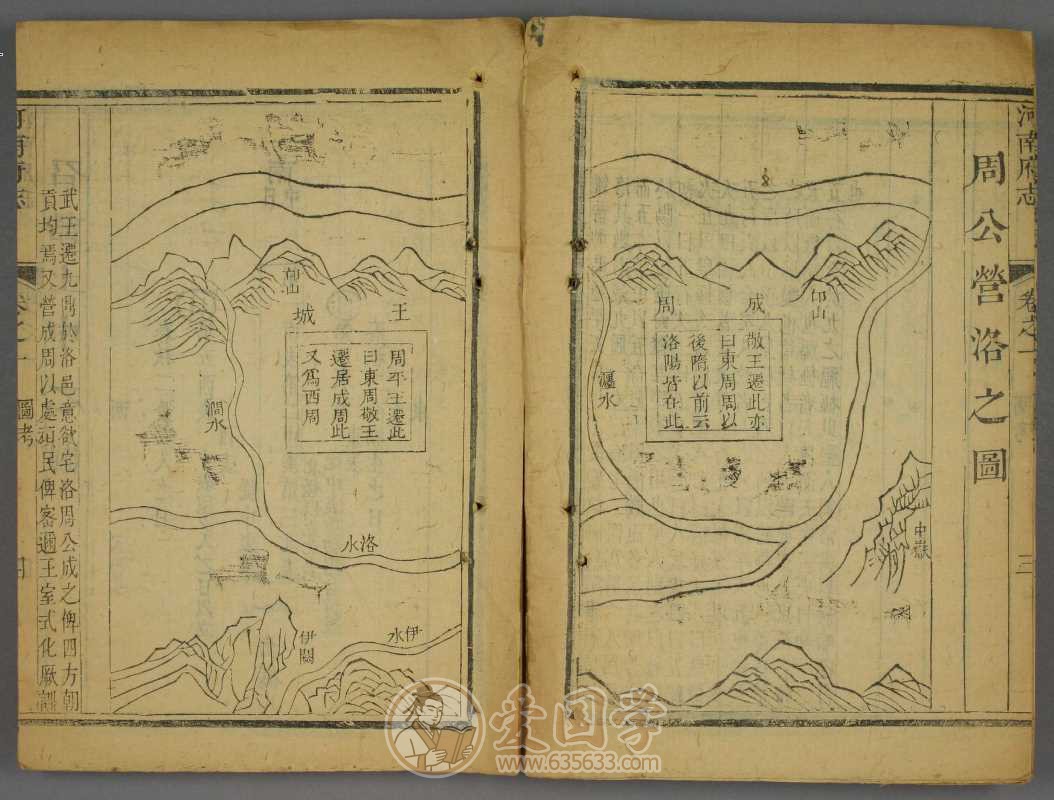 河南府志
卷之一
三
周公營洛之圖
邙山
成周
敬王遷此亦
曰東周周以
後隋以前云
洛陽皆在此
瀍水
中嶽
邙山
王城
周平王遷此
曰東周敬王
遷居成周此
又為西周
澗水
洛水
伊水
伊闕
武王遷九鼎於洛邑意欲宅洛周公成之俾四方朝
貢均焉又營成周以處頑民俾密邇王室式化厥訓
圖考
爱国学
www.635633.com